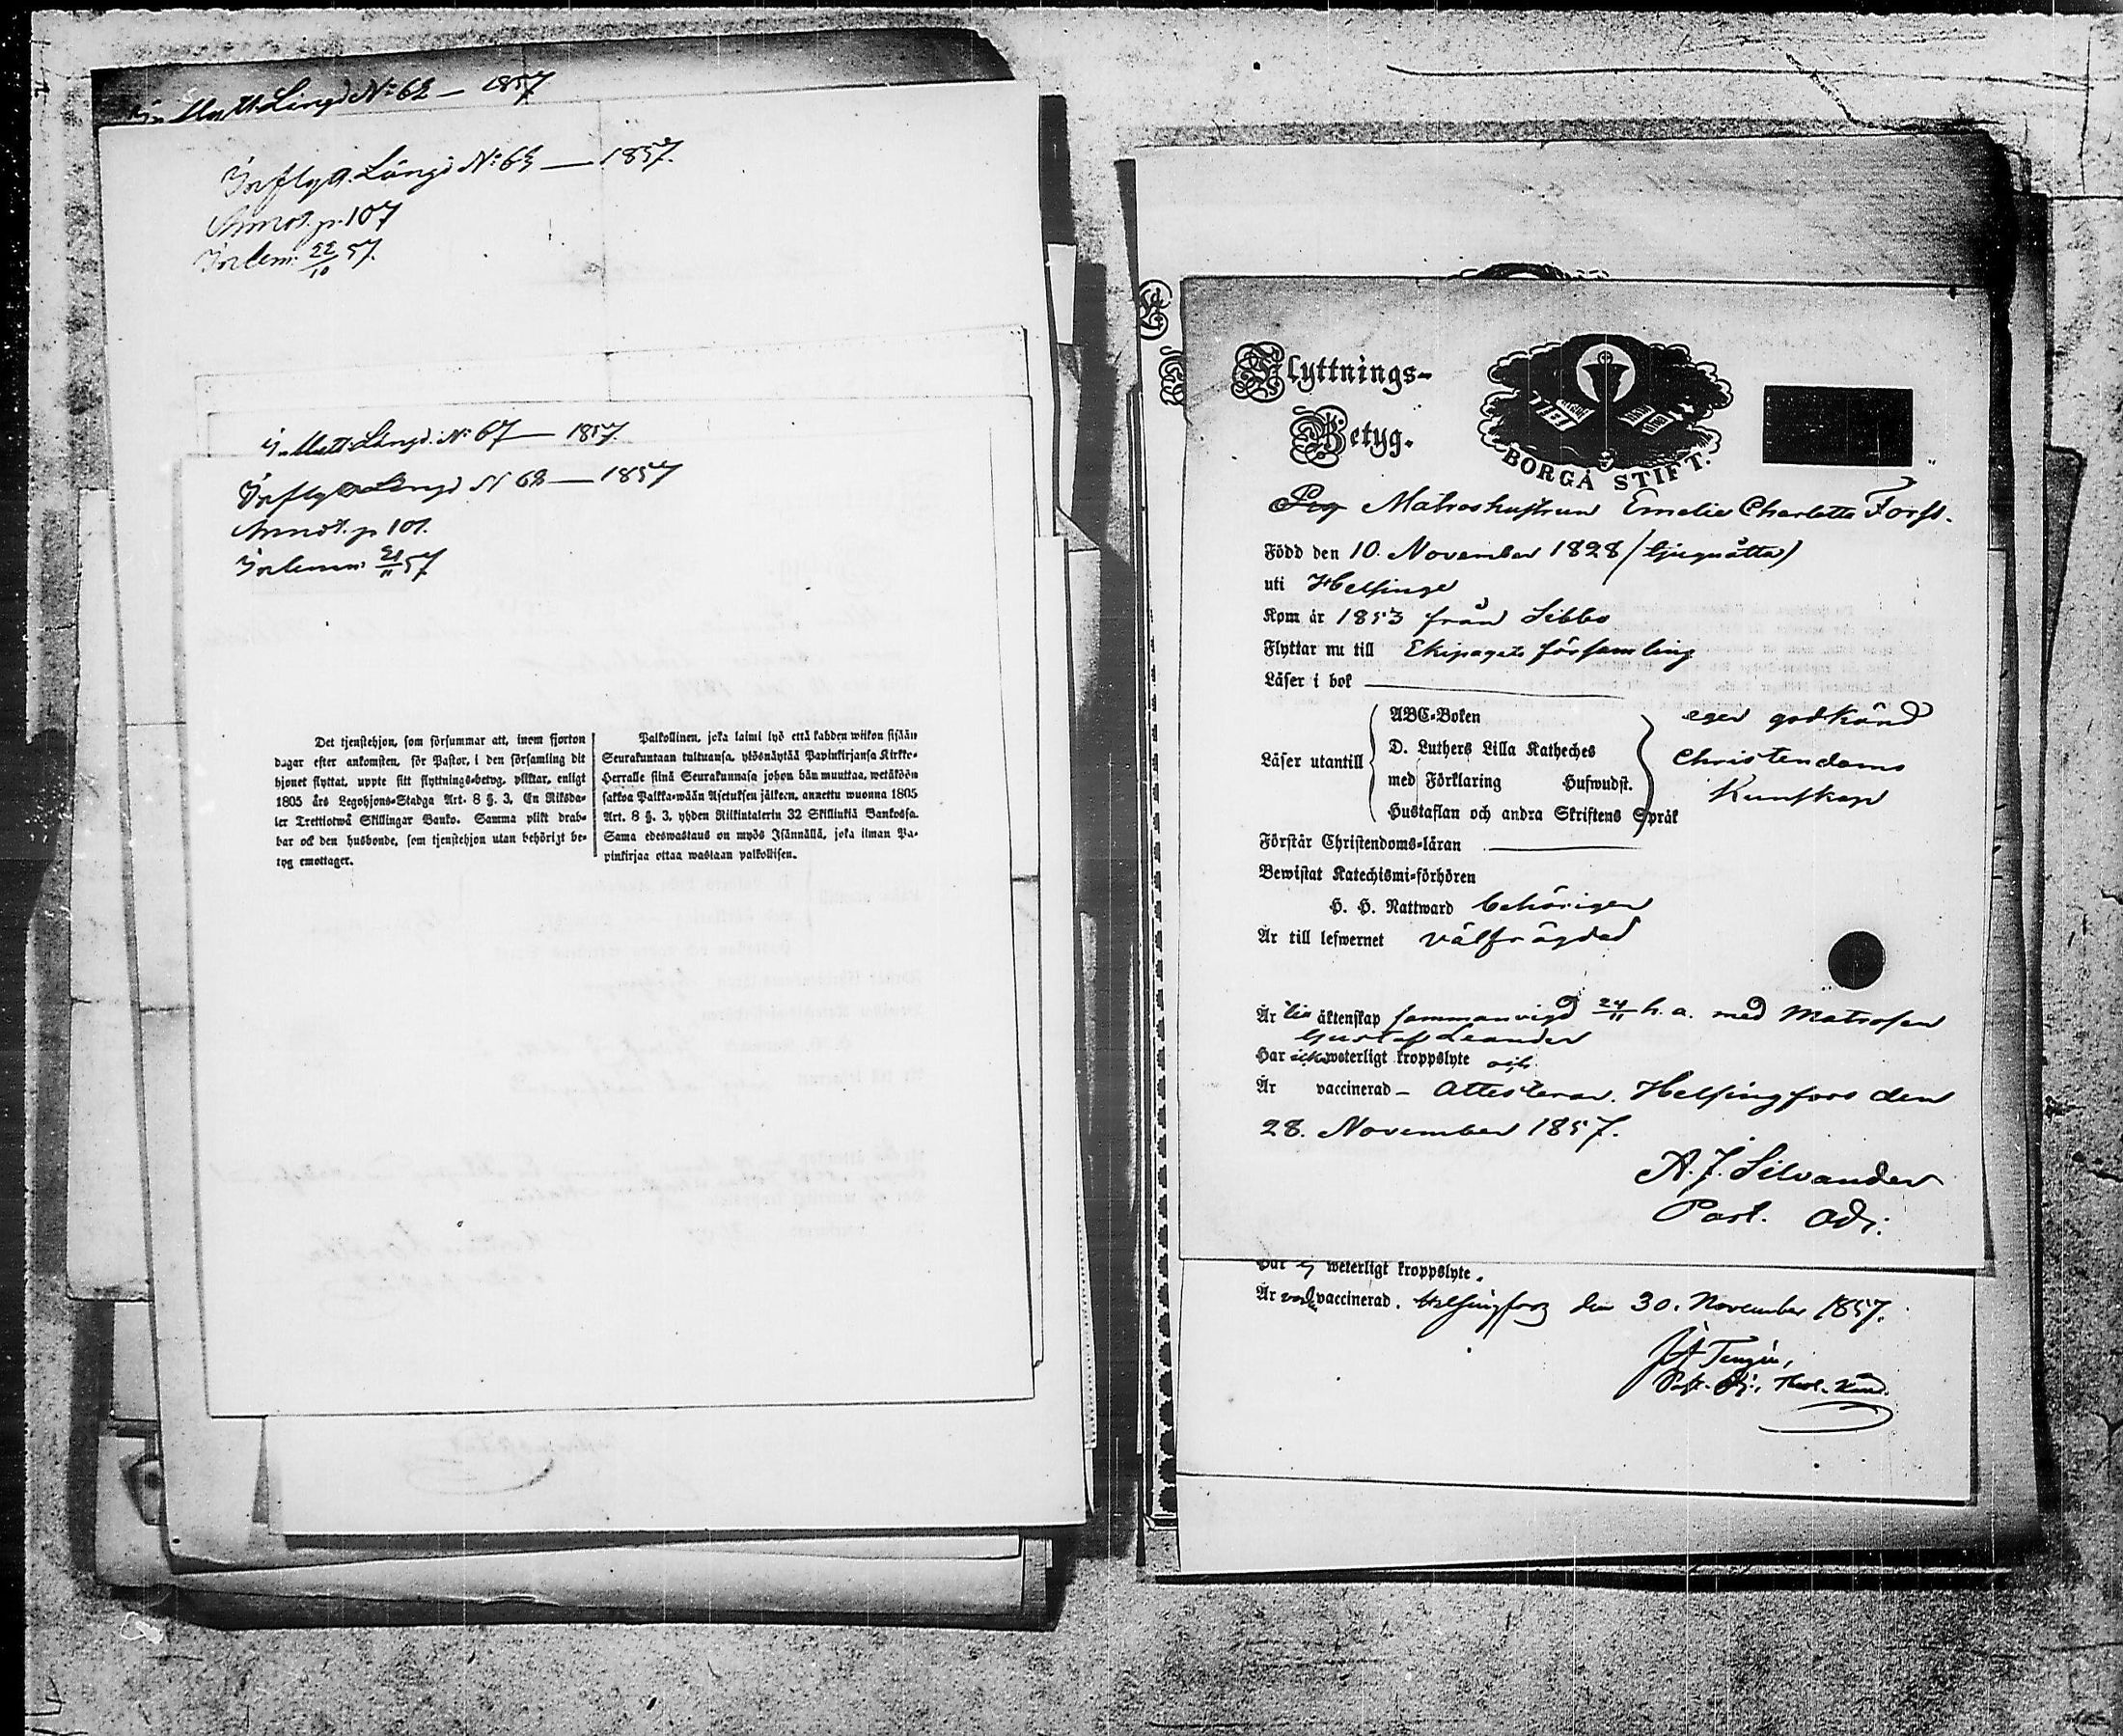 Längd No 62 — 1857
Inflyttn. Längd No 63 — 1857.
Annot. p. 107
Inlem. 22/10 57.
Längd No 67 — 1857.
Längd N 62 — 1857
Annot. p 101.
Inlemn. 21/11 57
Det tjenstehjon, som försummar att, inom fjorton
dagar efter ankomsten, för Pastor, i den församling dit
hjonet flyttat, uppte sitt flyttnings-betyg, pliktar, enligt
1805 års Legohjons-Stadga Art. 8 §. 3, En Riksda-
ler Trettiotwå Skillingar Banko. Samma plikt drab-
bar ock den husbonde, som tjenstehjon utan behörigt be-
tyg emottager.
Palkollinen, joka laimi lyö että kahden wiikon sisään
Seurakuntaan tultuansa, ylösnäytää Papinkirjansa Kirkko-
Herralle siinä Seurakunnasa johon hän muuttaa, wetäköön
sakkoa Palkka-wään Asetuksen jälkeen, annettu wuonna 1805
Art. 8 §. 3, yhden Riikintalerin 32 Skillinkiä Bankossa.
Sama edeswastaus on myös Isännällä, joka ilman Pa-
pinkirjaa ottaa wastaan palkollisen.
Flyttnings-
Betyg.
BORGÅ STIFT.
Pig Matroshustrun Emelie Charlotta Forss.
Född den 10. November 1828 (tjuguåtta)
uti Helsinge
Kom år 1853 från Sibbo
Flyttar nu till Ekipagets församling
Läser i bok
Läser utantill
ABC-Boken
D. Luthers Lilla Katheches
med Förklaring Hufwudst.
Hustaflan och andra Skriftens Språk
eger godkänd
Christendoms
Kunskap
Förstår Christendoms-läran
Bewistat Katechismi-förhören
H. H. Nattward behörigen
Är till lefwernet välfrägdad
Är till äktenskap sammanvigd 24/11 h. a. med Matrosen
Gustaf Leander
Har icke weterligt kroppslyte och
Är vaccinerad – Attesterar. Helsingfors den
28. November 1857.
A. J. Silvander
Past. Adj.
Har ej weterligt kroppslyte.
Är vaccinerad. Helsingfors den 30. November 1857.
Tengén,
Past. Adj., Theol. Kand.